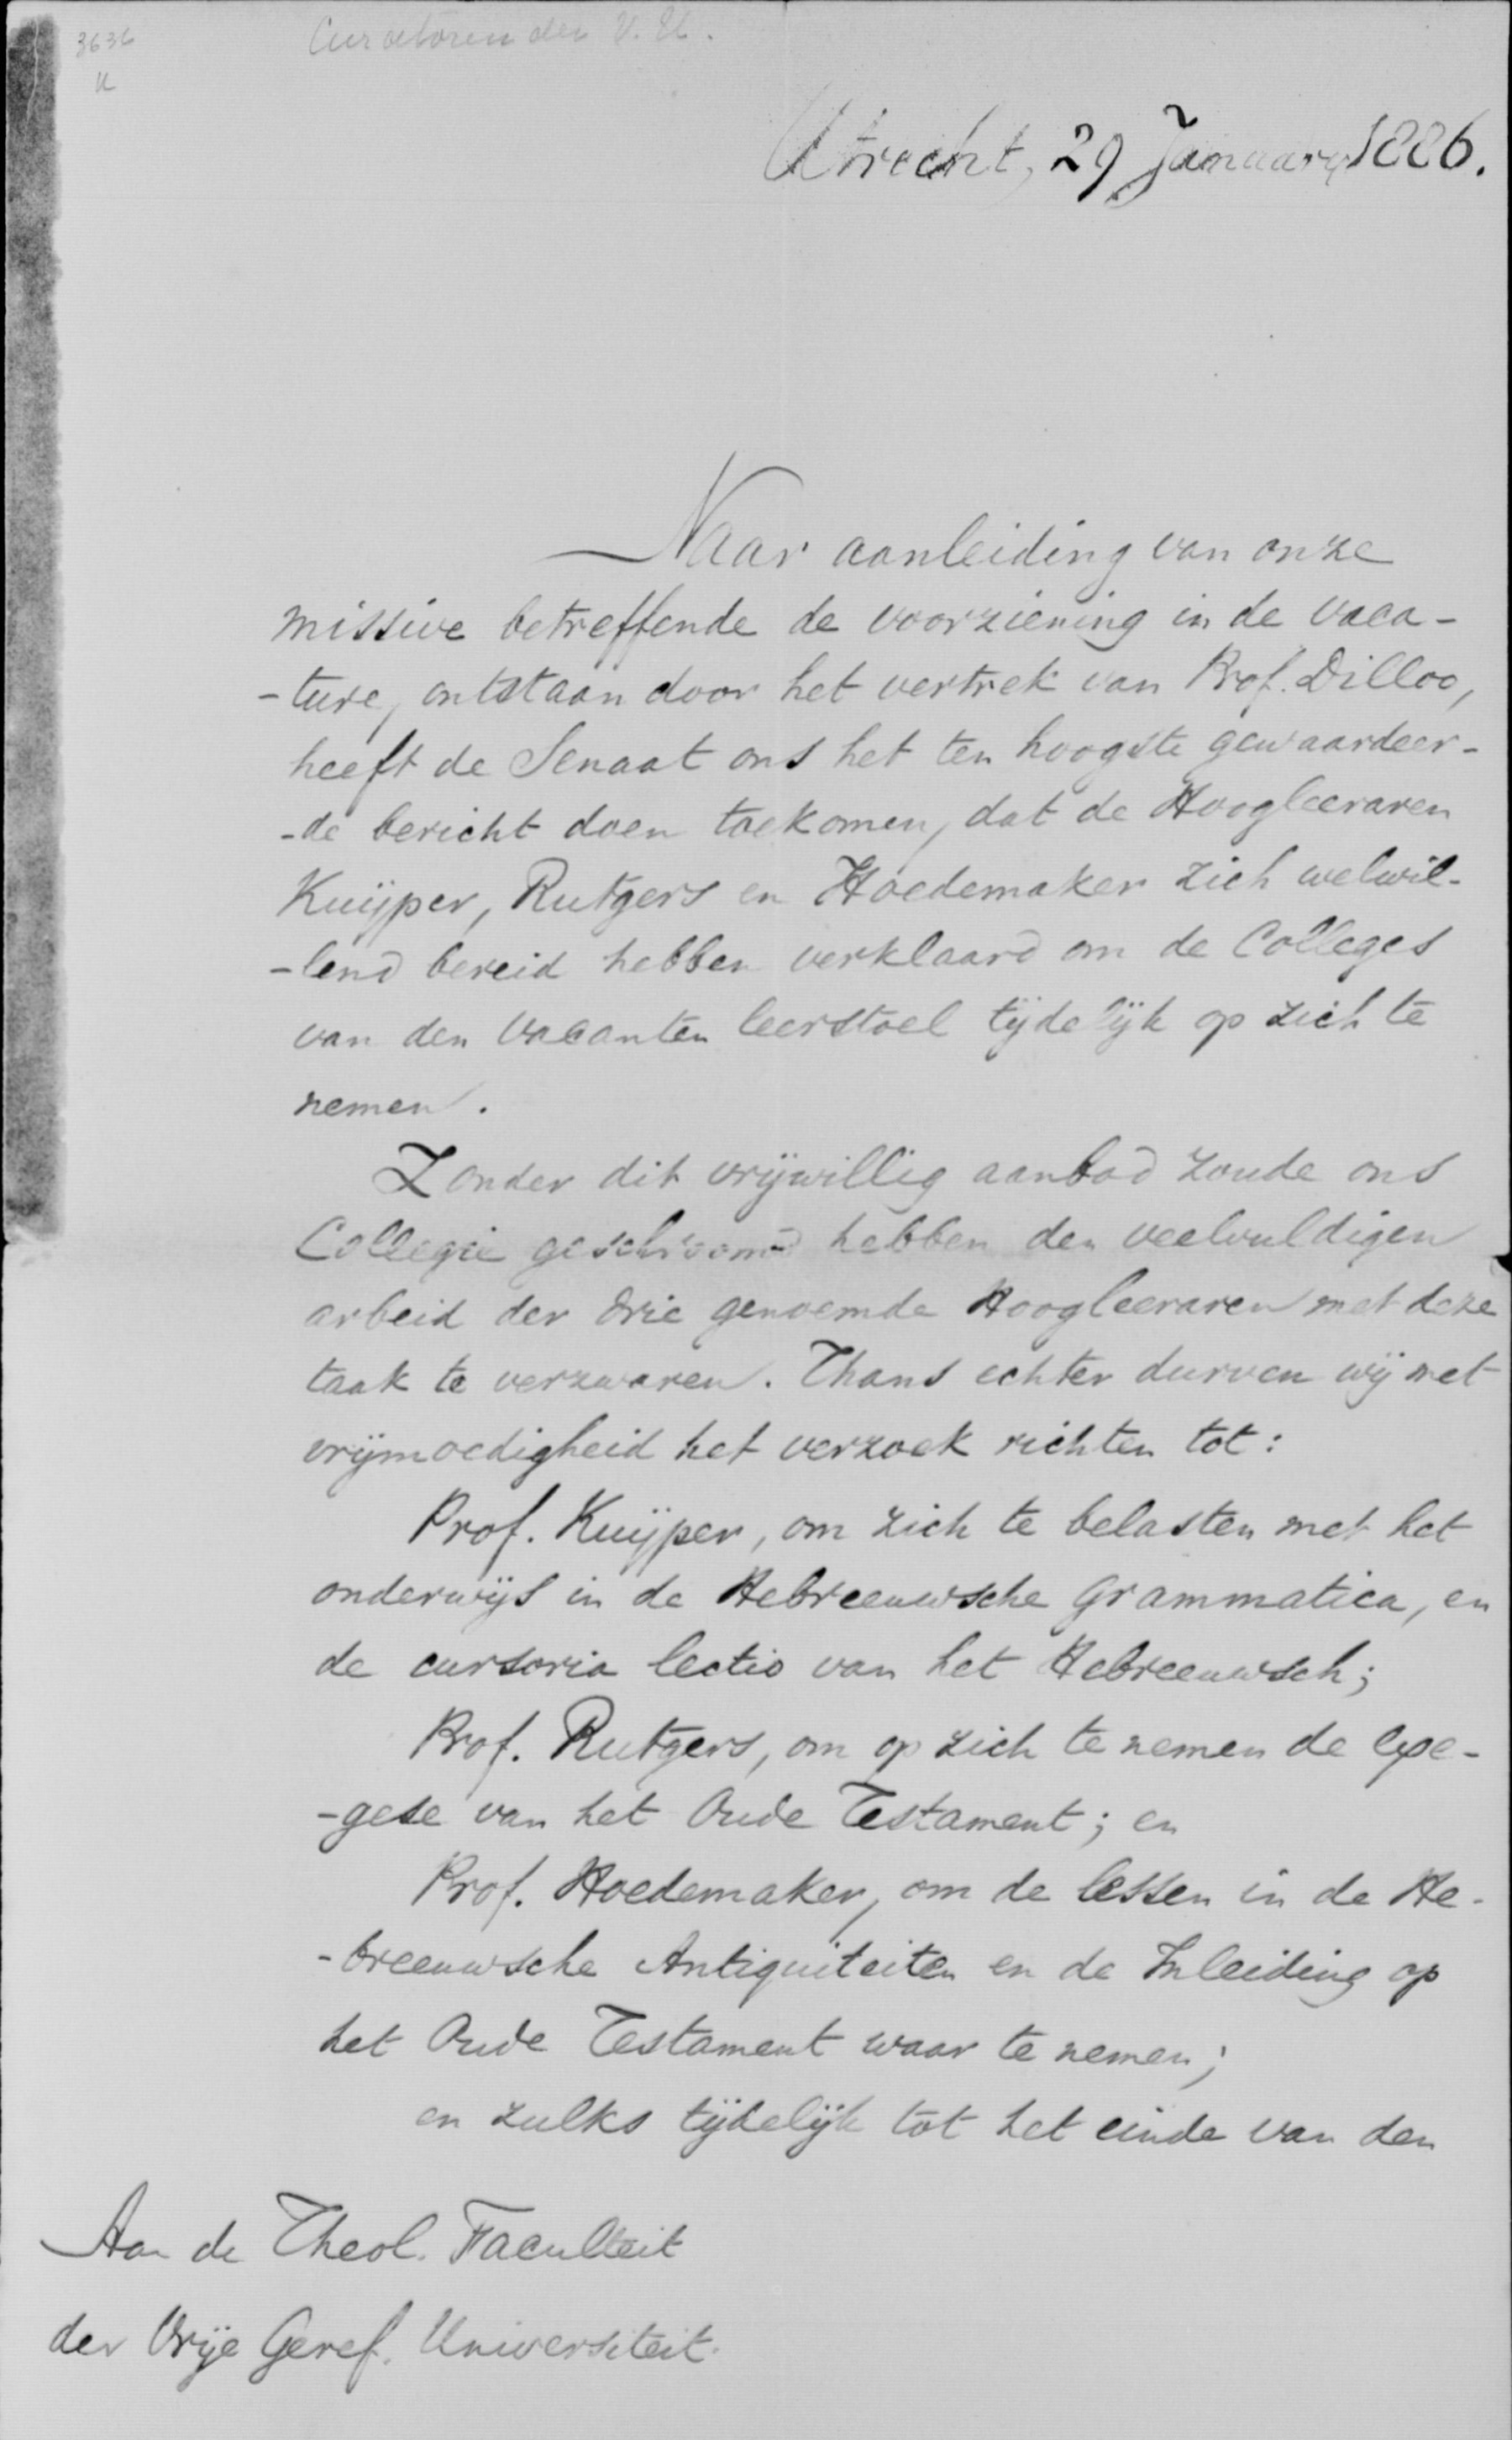 3636
Curatoren der V. U.
Utrecht, 29 January 1886.
Naar aanleiding van onze
missive betreffende de voorziening in de vaca-
-ture, ontstaan door het vertrek van Prof. Dilloo,
heeft de Senaat ons het ten hoogste gewaardeer-
-de bericht doen toekomen, dat de Hoogleeraren
Kuÿper, Rutgers en Hoedemaker zich welwil-
-lend bereid hebben verklaard om de Colleges
van den vacanten leerstoel tÿdelÿk op zich te
nemen.
Zonder dit vrÿwillig aanbod zoude ons
Collegie geschroomd hebben den veelvuldigen
arbeid der drie genoemde Hoogleeraren met deze
taak te verzwaren. Thans echter durven wÿ met
vrÿmoedigheid het verzoek richten tot:
Prof. Kuÿper, om zich te belasten met het
onderwÿs in de Hebreeuwsche Grammatica, en
de cursoria lectio van het Hebreeuwsch;
Prof. Rutgers, om op zich te nemen de exe-
-gese van het Oude Testament; en
Prof. Hoedemaker, om de lessen in de He-
-breeuwsche Antiquiteiten en de Inleiding op
het Oude Testament waar te nemen;
en zulks tÿdelÿk tot het einde van den
Aan de Theol. Faculteit
der Vrÿe Geref. Universiteit.